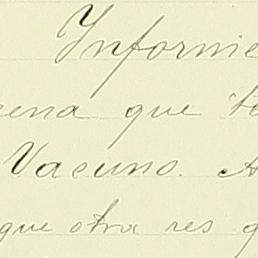 Informe
cena que te
Vacuno. A
que otra res q